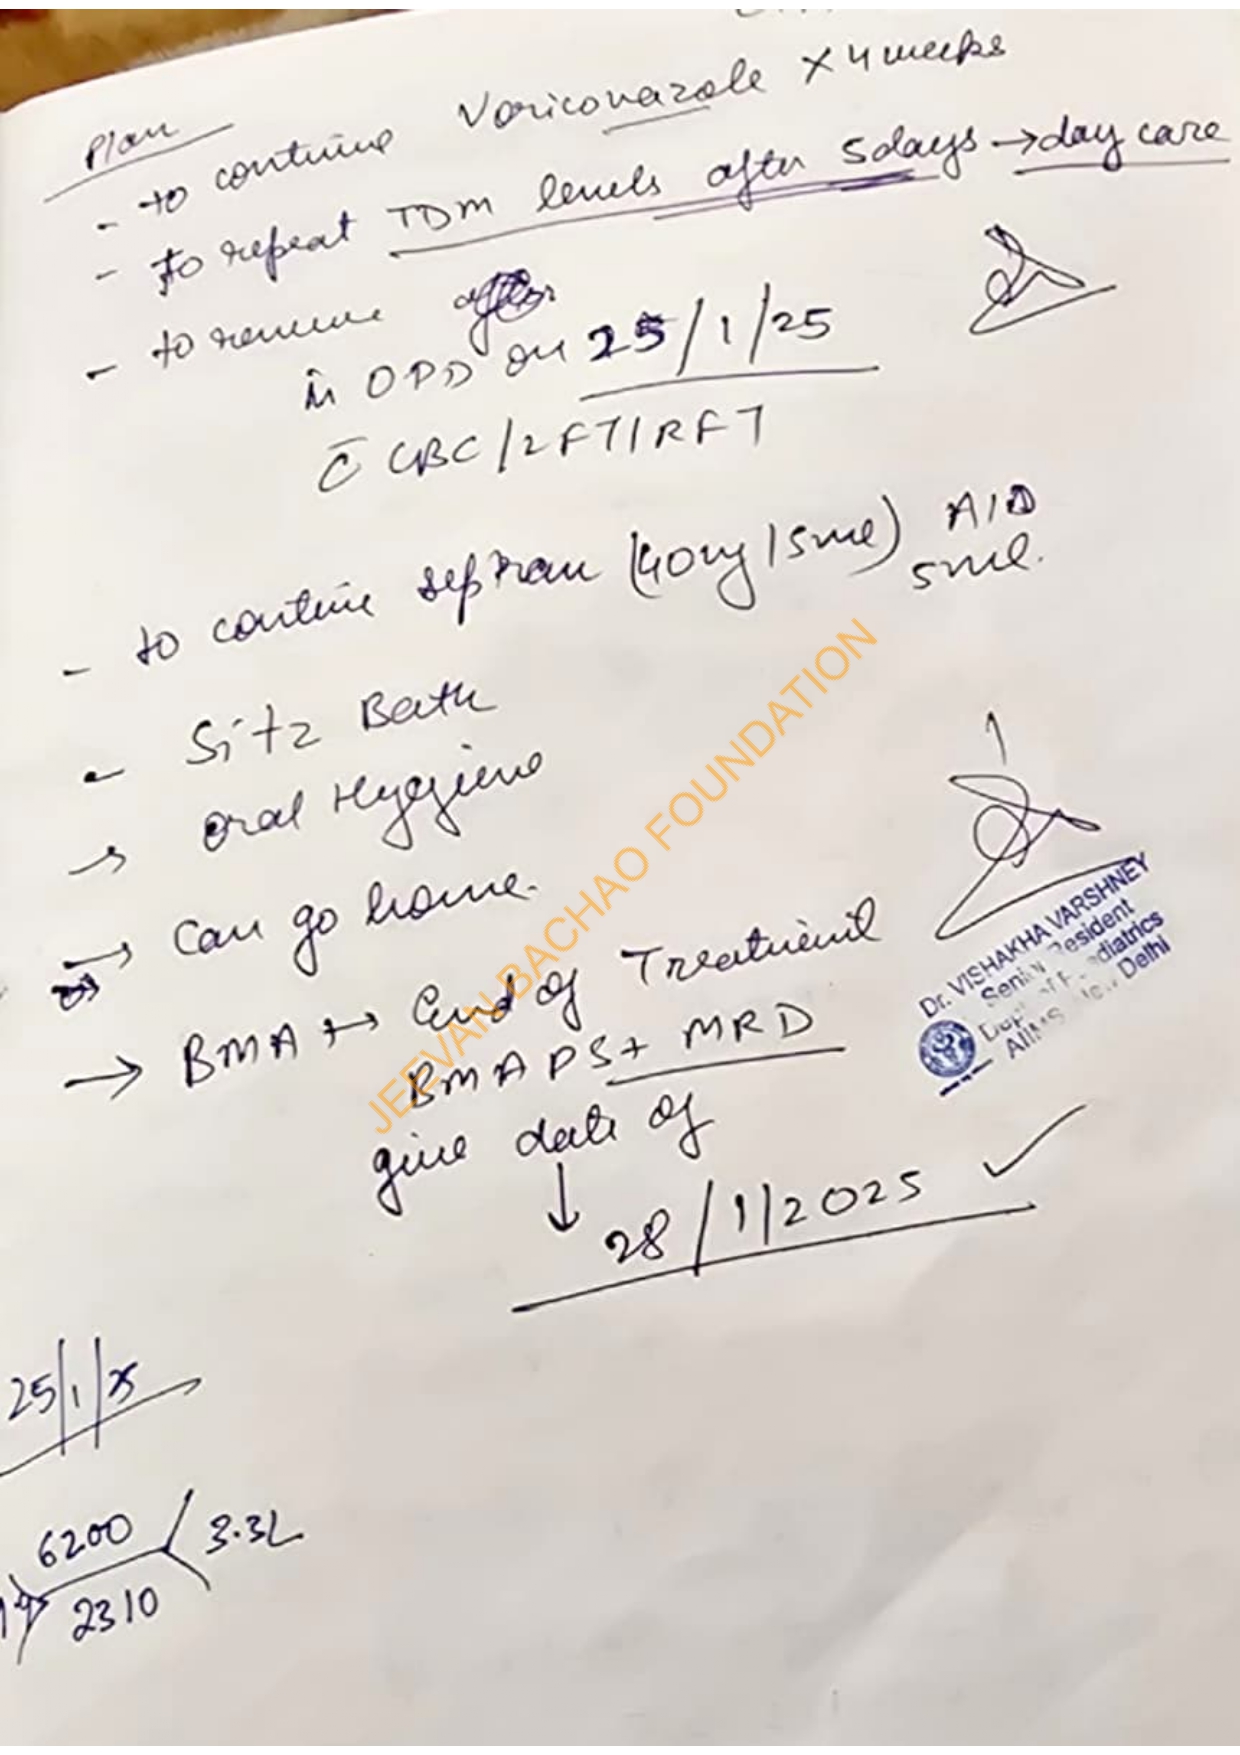 Plan
- to continue Voriconazole × 4 weeks
- to repeat TDM levels after 5days → day care
- to review after
in OPD on 25/1/25
c̄ CBC/LFT/RFT
- to continue septran (40mg/5ml) A/D
5ml.
- Sitz Bath
→ oral Hygiene
→ Can go home.
→ BMA → End of Treatment
BMA PS + MRD
give date of
↓
28/1/2025 ✓
Dr. VISHAKHA VARSHNEY
Senior Resident
Dept. of Pediatrics
AIIMS, New Delhi
25/1/25
6200 3.3L
2310
JEEVAN BACHAO FOUNDATION